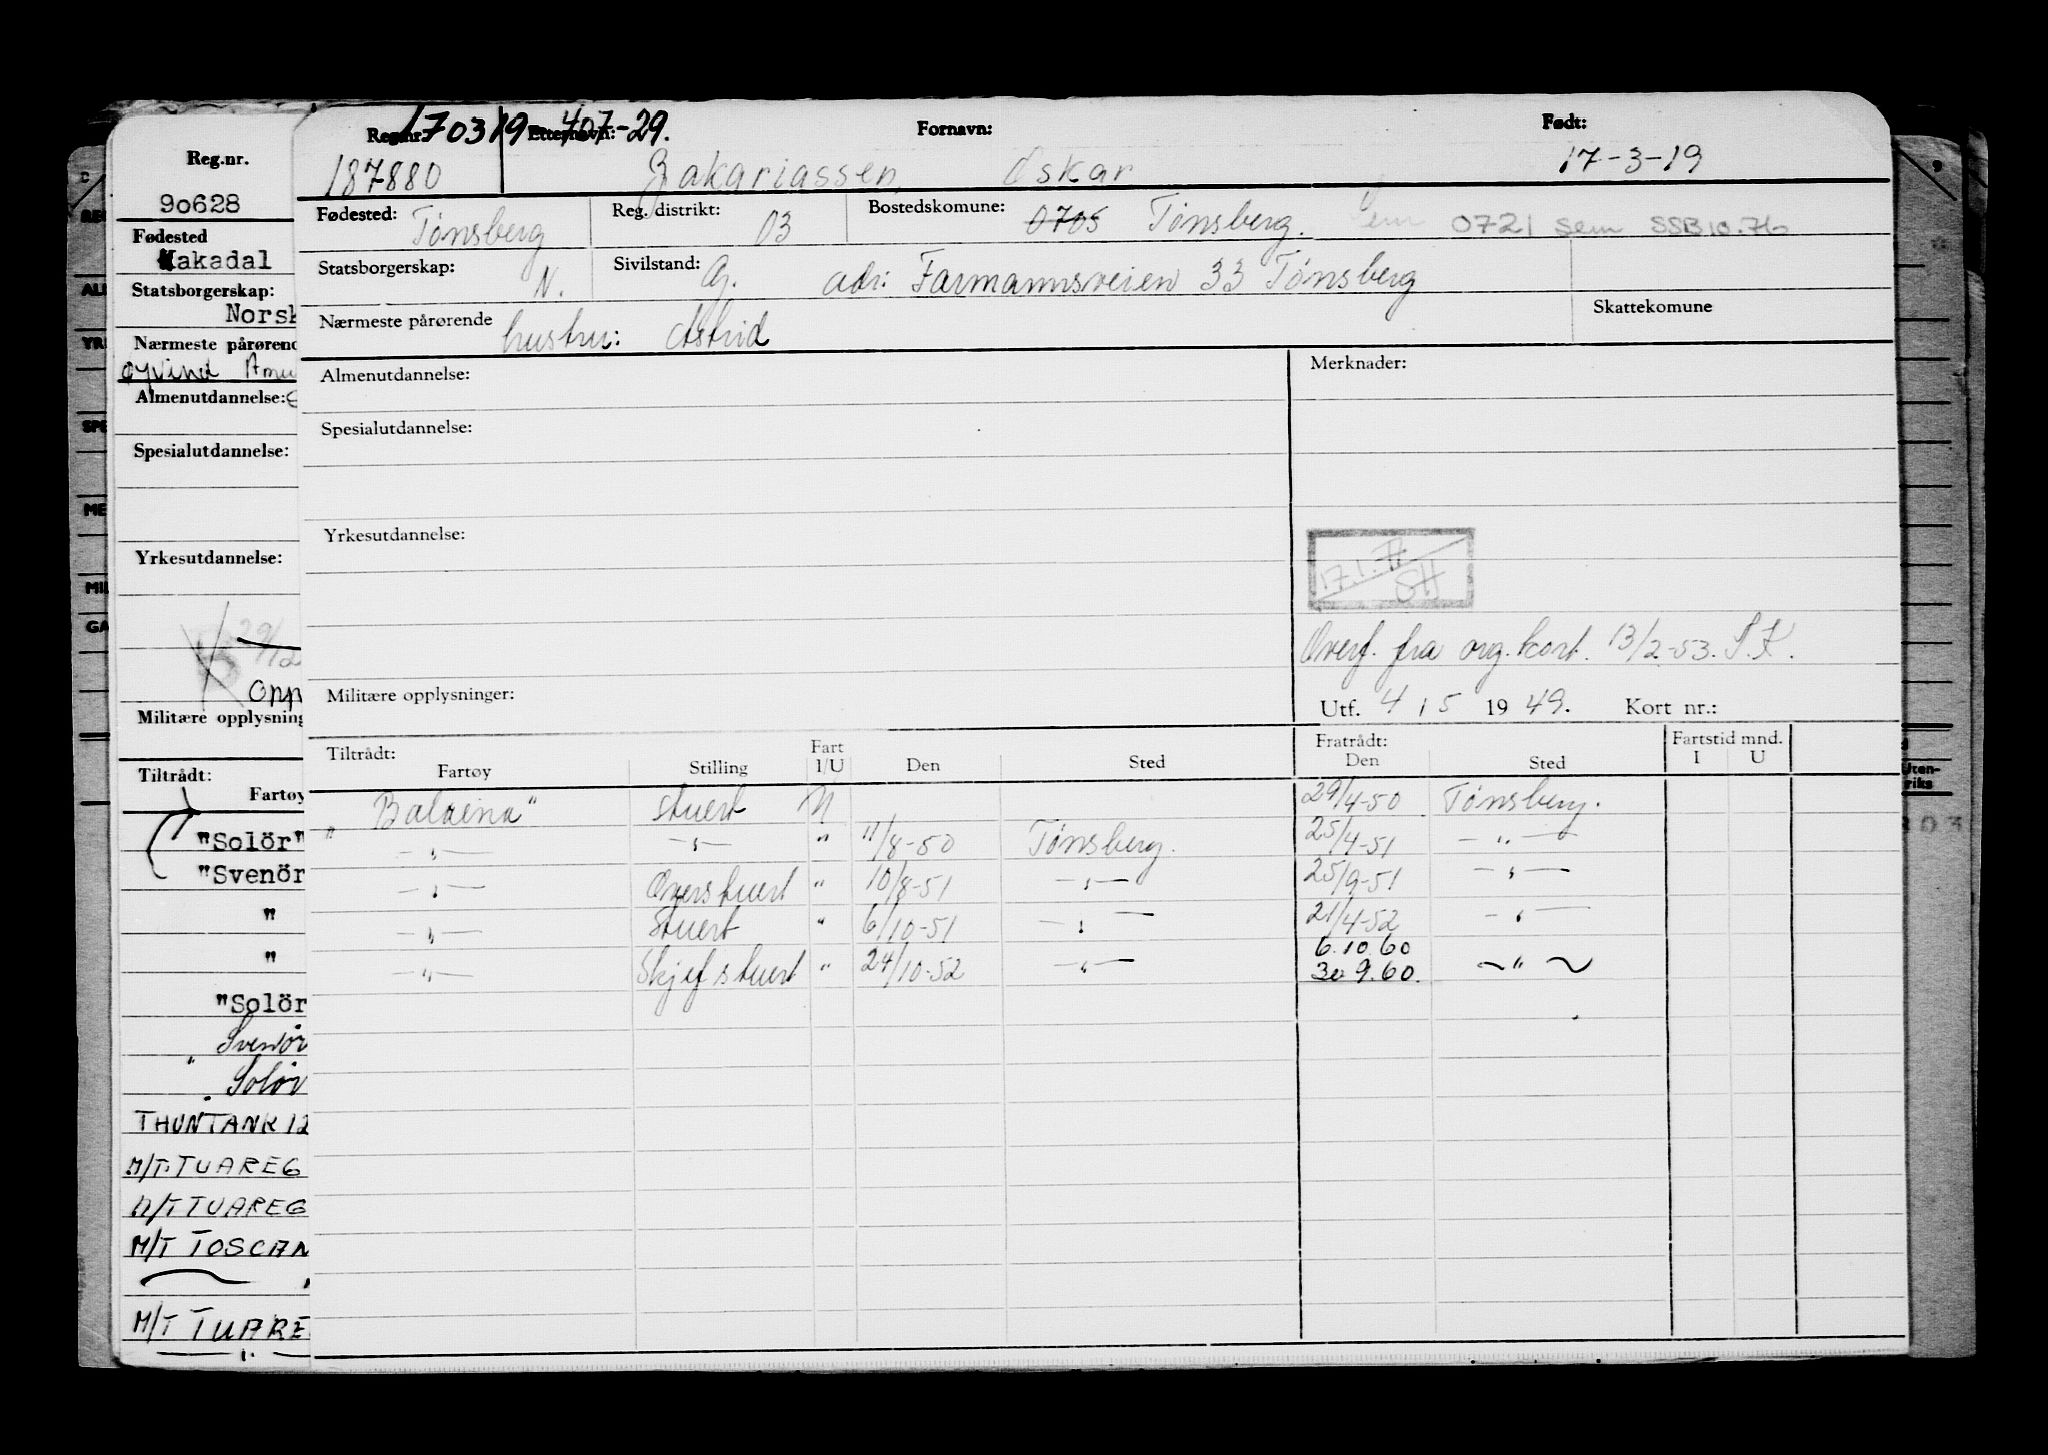 Reg.nr. 170319-407-29. Etternavn: Fornavn: Født:
187880 Zakariassen, Oskar 17-3-19
Fødested: Tønsberg Reg. distrikt: 03 Bostedskomune: 0705 Tønsberg. Sem 0721 Sem SSB 10.76
Statsborgerskap: N. Sivilstand: G. adr: Farmannsveien 33 Tønsberg
Nærmeste pårørende hustru: Astrid Skattekomune
Almenutdannelse: Merknader:
Spesialutdannelse:
Yrkesutdannelse:
17.1.77 SH
Overf. fra org. kort. 13/2-53. S.K.
Militære opplysninger: Utf. 4/5 1949. Kort nr.:
Tiltrådt: Fart Fratrådt: Fartstid mnd.
Fartøy Stilling I/U Den Sted Den Sted I U
"Balaena" stuert U 29/4-50 Tønsberg.
" —"— —"— " 11/8-50 Tønsberg. 25/4-51 —"—
—"— Overstuert " 10/8-51 —"— 25/9-51 —"—
—"— Stuert " 6/10-51 —"— 21/4-52 —"—
6.10.60
—"— Skjefstuert " 24/10-52 —"— 30 9.60. —"—
Reg.nr.
90628
Fødested
Makadal
Statsborgerskap:
Norsk
Nærmeste pårørend
Øyvind
Almenutdannelse:
Spesialutdannelse:
Yrkesutdannelse:
29/12
Opp
Militære opplysning
Tiltrådt:
Fartøy
"Solör"
"Svenör
"
"
"Solör
Svenör
" Solör
THUNTANK 12
M/T TUAREG
M/T TUAREG
M/T TOSCAN
M/T TUARE
"
ALM
YR
SPE
ME
MIL
GA
9
Uten-
riks
303